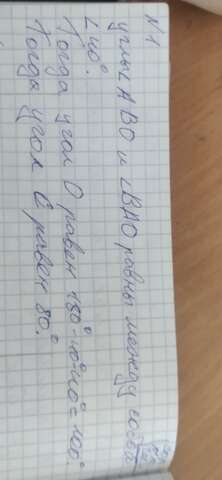 N1
углы ∠ABO и ∠BAO равны между собой
∠40°.
Тогда угол O равен 180°-40°-40°=100°.
Тогда угол C равен 80°.